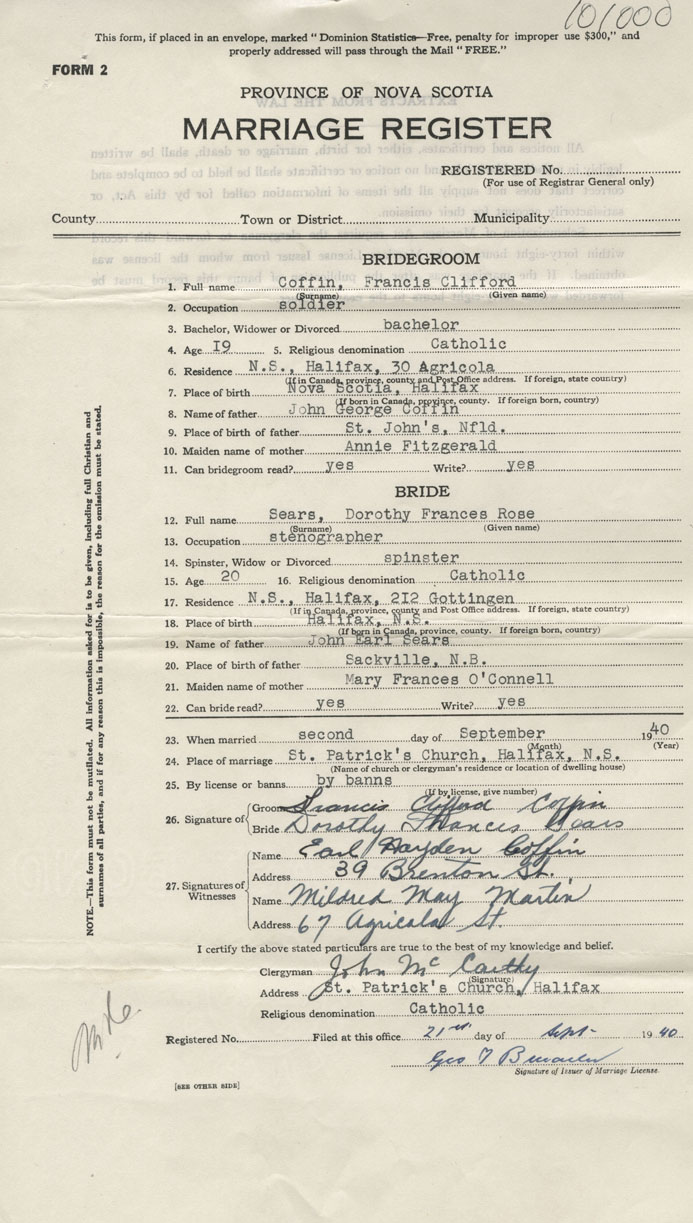 101000
This form, if placed in an envelope, marked "Dominion Statistics—Free, penalty for improper use $300," and
properly addressed will pass through the Mail "FREE."
FORM 2
PROVINCE OF NOVA SCOTIA
MARRIAGE REGISTER
REGISTERED No.
(For use of Registrar General only)
County Town or District Municipality
BRIDEGROOM
1. Full name Coffin, Francis Clifford
(Surname) (Given name)
2. Occupation soldier
3. Bachelor, Widower or Divorced bachelor
4. Age I9 5. Religious denomination Catholic
6. Residence N.S., Halifax, 30 Agricola
(If in Canada, province, county and Post Office address. If foreign, state country)
7. Place of birth Nova Scotia, Halifax
(If born in Canada, province, county. If foreign born, country)
8. Name of father John George Coffin
9. Place of birth of father St. John's, Nfld.
10. Maiden name of mother Annie Fitzgerald
11. Can bridegroom read? yes Write? yes
BRIDE
12. Full name Sears, Dorothy Frances Rose
(Surname) (Given name)
13. Occupation stenographer
14. Spinster, Widow or Divorced spinster
15. Age 20 16. Religious denomination Catholic
17. Residence N.S., Halifax, 2I2 Gottingen
(If in Canada, province, county and Post Office address. If foreign, state country)
18. Place of birth Halifax, N.S.
(If born in Canada, province, county. If foreign born, country)
19. Name of father John Earl Sears
20. Place of birth of father Sackville, N.B.
21. Maiden name of mother Mary Frances O'Connell
22. Can bride read? yes Write? yes
23. When married second day of September 1940
(Month) (Year)
24. Place of marriage St. Patrick's Church, Halifax, N.S.
(Name of church or clergyman's residence or location of dwelling house)
25. By license or banns by banns
(If by license, give number)
26. Signature of
Groom Francis Clifford Coffin
Bride Dorothy Frances Sears
27. Signatures of Witnesses
Name Earl Hayden Coffin
Address 39 Brenton St.
Name Mildred May Martin
Address 67 Agricola St.
I certify the above stated particulars are true to the best of my knowledge and belief.
Clergyman John McCarthy
(Signature)
Address St. Patrick's Church, Halifax
Religious denomination Catholic
Registered No. Filed at this office 21st day of Sept- 1940
Geo
Signature of Issuer of Marriage License
[SEE OTHER SIDE]
NOTE.—This form must not be mutilated. All information asked for is to be given, including full Christian and
surnames of all parties, and if for any reason this is impossible, the reason for the omission must be stated.